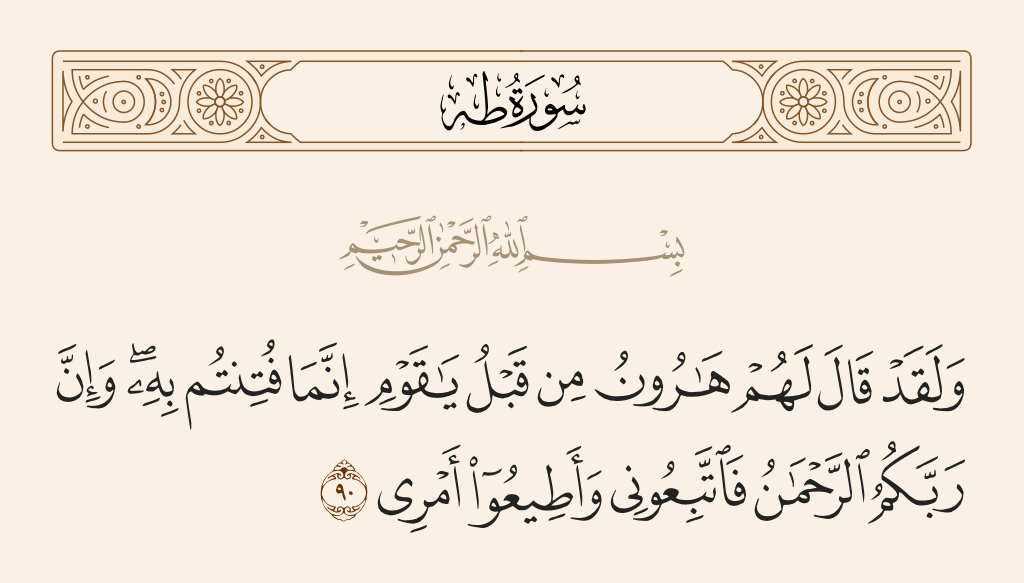 سُورَةُ طه
بِسْمِ ٱللَّهِ ٱلرَّحْمَٰنِ ٱلرَّحِيمِ
وَلَقَدْ قَالَ لَهُمْ هَـٰرُونُ مِن قَبْلُ يَـٰقَوْمِ إِنَّمَا فُتِنتُم بِهِۦ ۖ وَإِنَّ
رَبَّكُمُ ٱلرَّحْمَـٰنُ فَٱتَّبِعُونِى وَأَطِيعُوٓا۟ أَمْرِى ٩٠